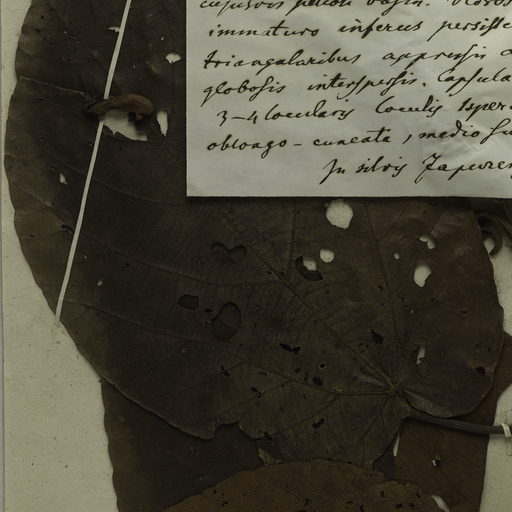 cujusvis petioli vagin.
immaturo inferus persist
triangularibus appressis
globosis interspersis. Capsula
3-4 locularis loculis 1sper
oblongo-cuneata, medio su
In silvis Japuren